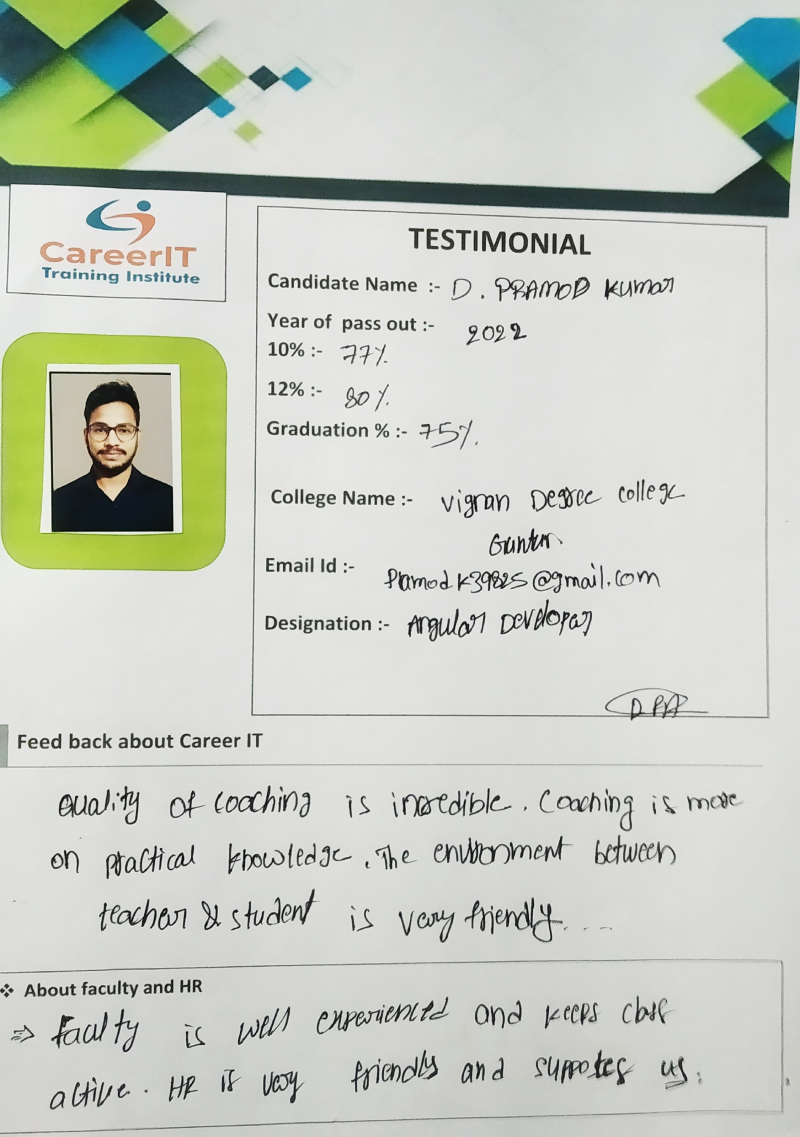 CareerIT
Training Institute
TESTIMONIAL
Candidate Name :- D. PRAMOD Kumar
Year of pass out :- 2022
10% :- 77%
12% :- 80%
Graduation % :- 75%
College Name :- Vignan Degree college
Guntur
Email Id :- Pramodk39825@gmail.com
Designation :- Angular Developer
Feed back about Career IT
quality of coaching is incredible. Coaching is more
on practical knowledge. The environment between
teacher & student is very friendly....
❖ About faculty and HR
⇒ faculty is well experienced and keeps class
active. HR is very friendly and supportes us.